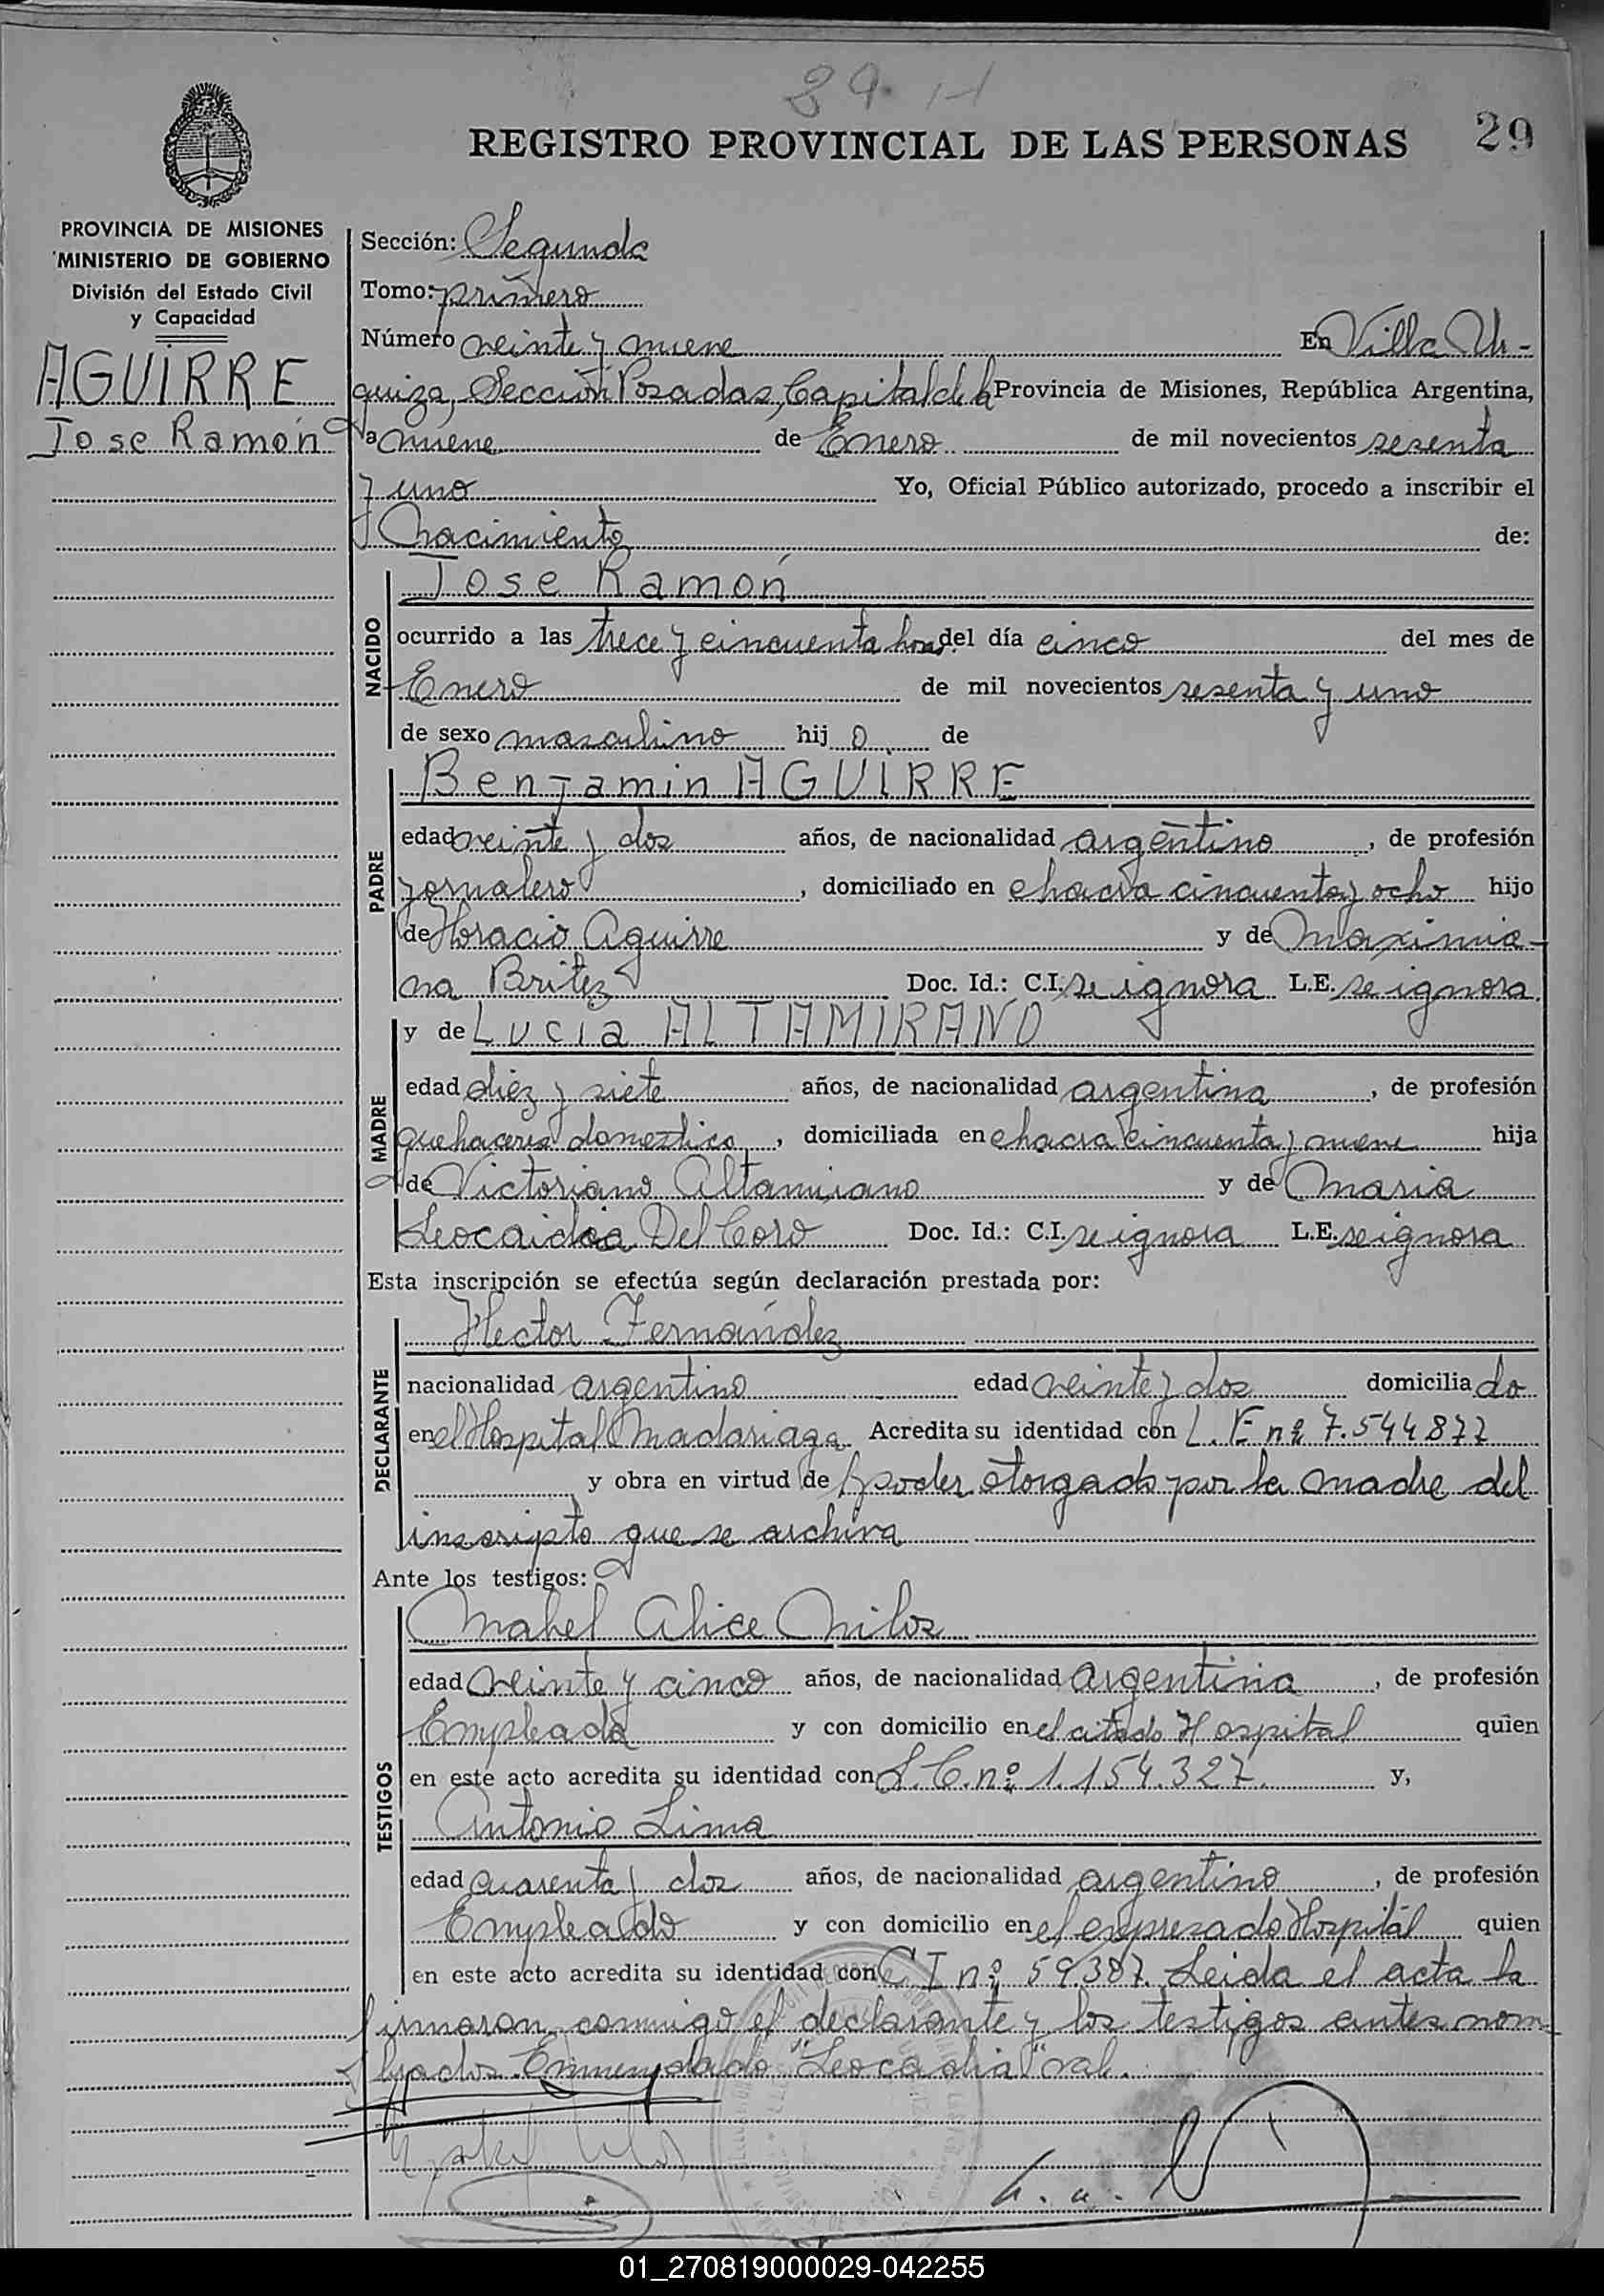 29
REGISTRO PROVINCIAL DE LAS PERSONAS
29
PROVINCIA DE MISIONES
MINISTERIO DE GOBIERNO
División del Estado Civil
y Capacidad
AGUIRRE
Jose Ramón
Sección: Segunda
Tomo: primero
Número veinte y nueve En Villa Ur-
quiza, Sección Posadas, Capital de la Provincia de Misiones, República Argentina,
a nueve de Enero de mil novecientos sesenta
y uno Yo, Oficial Público autorizado, procedo a inscribir el
Nacimiento de:
NACIDO
Jose Ramón
ocurrido a las trece y cincuenta horas del día cinco del mes de
Enero de mil novecientos sesenta y uno
de sexo masculino hijo de
PADRE
Benjamin AGUIRRE
edad veinte y dos años, de nacionalidad argentino, de profesión
jornalero, domiciliado en chacra cincuenta y ocho hijo
de Horacio Aguirre y de Maximia-
na Britez Doc. Id.: C.I. se ignora L.E. se ignora
MADRE
y de Lucía ALTAMIRANO
edad diez y siete años, de nacionalidad argentina, de profesión
quehaceres domestico, domiciliada en chacra cincuenta y nueve hija
de Victoriano Altamirano y de Maria
Leocadia Del Coro Doc. Id.: C.I. se ignora L.E. se ignora
Esta inscripción se efectúa según declaración prestada por:
DECLARANTE
Hector Fernández
nacionalidad argentino edad veinte y dos domiciliado
en el Hospital Madariaga Acredita su identidad con L.E nº 7.544877
y obra en virtud de poder otorgado por la madre del
inscripto que se archiva
Ante los testigos:
TESTIGOS
Mabel Alice Milos
edad veinte y cinco años, de nacionalidad argentina, de profesión
Empleada y con domicilio en el citado Hospital quien
en este acto acredita su identidad con L.C. nº 1.154.327. y,
Antonio Lima
edad cuarenta y dos años, de nacionalidad argentino, de profesión
Empleado y con domicilio en el expresado Hospital quien
en este acto acredita su identidad con C I nº 59.387 Leida el acta la
firmaron conmigo el declarante y los testigos antes nom-
brados. Enmendado "Leocadia" vale.
01_270819000029-042255